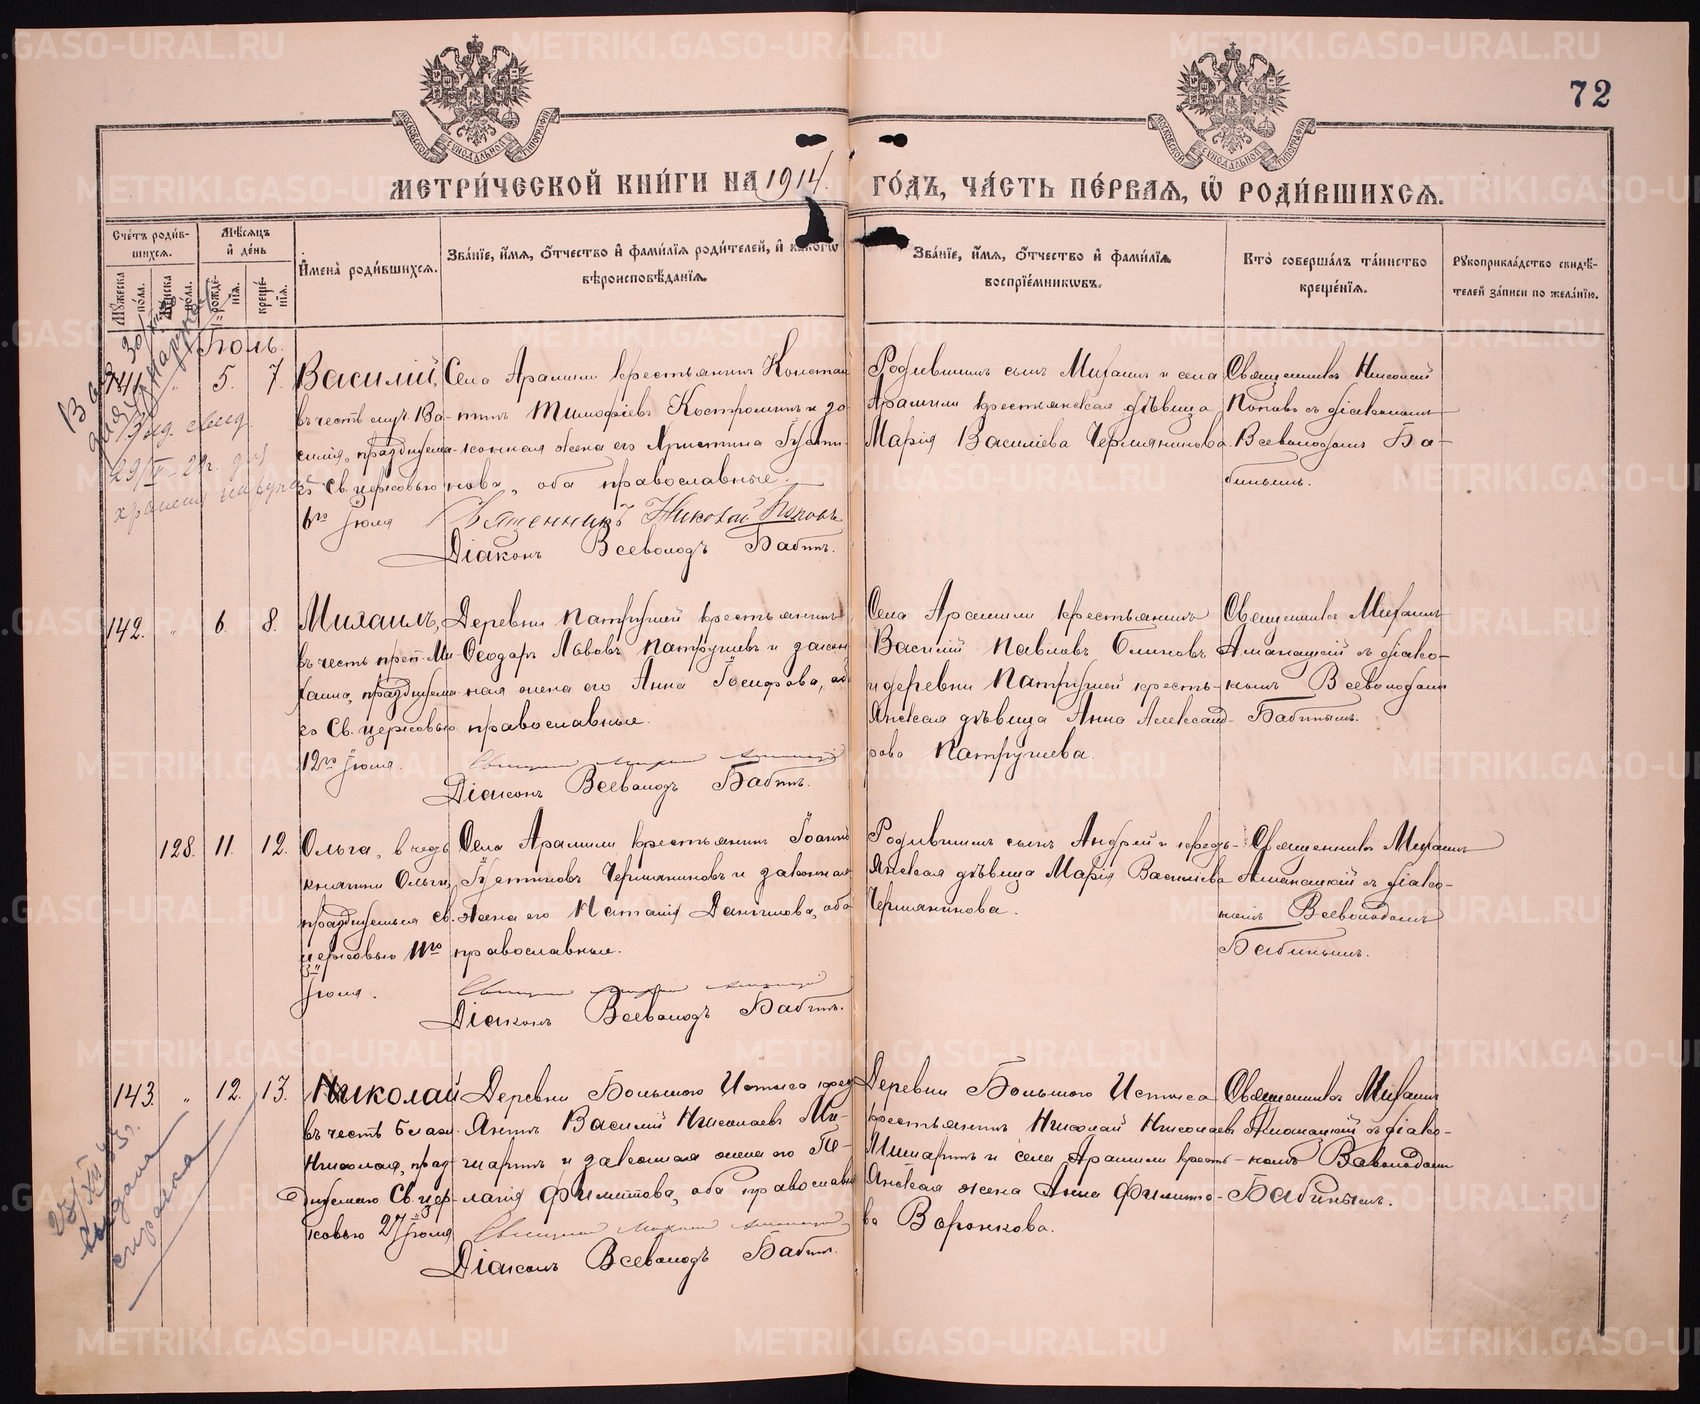 72
МЕТРИ́ЧЕСКОЙ КНИ́ГИ НА 1914 ГО́ДЪ, ЧА́СТЬ ПЕ́РВАЯ, Ѽ РОДИ́ВШИХСЯ.
Сче́тъ роди́в-
шихся.
Мѣ́сяцъ
и де́нь
Имена̀ роди́вшихся.
Зва́нїе, и́мя, о́тчество и фами́лїя роди́телей, и како́гѡ
вѣроисповѣ́данїя.
Зва́нїе, и́мя, о́тчество и фами́лїя
воспрїе́мникѡвъ.
Кто̀ соверша́лъ та́инство
креще́нїя.
Рукоприкла́дство свидѣ́-
телей за́писи по жела́нїю.
Му́жеска
по́ла.
Же́нска
по́ла.
рожде́-
нїя.
креще́-
нїя.
Іюль.
141. " 5. 7.
Василій,
въ честь
празднуема-
го Св. церковью
Іюля
Села Арамили крестьянинъ Констан
тинъ Тимофѣевъ Костроминъ и за
конная жена его Христина Густи-
нова, оба православные.
Священникъ Николай Поповъ
Діаконъ Всеволодъ Бабинъ.
Родившихъ сынъ Михаилъ и села
Арамили крестьянская дѣвица
Марія Василіева Чермянинова
Священникъ Николай
Поповъ съ діакономъ
Всеволодомъ Ба-
бинымъ.
142. " 6. 8.
Михаилъ,
въ честь преп. Ми
хаила, празднуема
го Св. церковью
12го Іюля.
Деревни Патрушей крестьянинъ
Ѳеодоръ Львовъ Патрушевъ и закон
ная жена его Анна Іосифова, оба
православные.
Діаконъ Всеволодъ Бабинъ.
Села Арамили крестьянинъ
Василій Павловъ Блиновъ
и деревни Патрушей кресть-
янская дѣвица Анна Александ-
рова Патрушева.
Священникъ Михаилъ
съ діако-
номъ Всеволодомъ
Бабинымъ.
128. 11. 12.
Ольга, въ честь
княгини Ольги,
празднуемыя Св.
церковью 11го
Іюля.
Села Арамили крестьянинъ Іоаннъ
Густиновъ Чермяниновъ и законная
жена его Наталія Данилова, оба
православные.
Діаконъ Всеволодъ Бабинъ.
Родившихъ сынъ Андрей и кресть-
янская дѣвица Марія Василіева
Чермянинова.
Священникъ Михаилъ
съ діако-
номъ Всеволодомъ
Бабинымъ.
143. " 12. 13.
Николай
въ честь Блаж.
Николая, празд-
нуемаго Св. цер-
ковью 27 Іюля
Деревни Большого Истока крест
янинъ Василій Николаевъ Ми-
шаринъ и законная жена его Пе-
лагія Филиппова, оба православн
Діаконъ Всеволодъ Бабинъ.
Деревни Большого Истока
крестьянинъ Николай Николаевъ
Мишаринъ и села Арамили кресть-
янская жена Анна Филиппо-
ва Воронкова.
Священникъ Михаилъ
съ діако-
номъ Всеволодомъ
Бабинымъ.
выдана
справка
METRIKI.GASO-URAL.RU